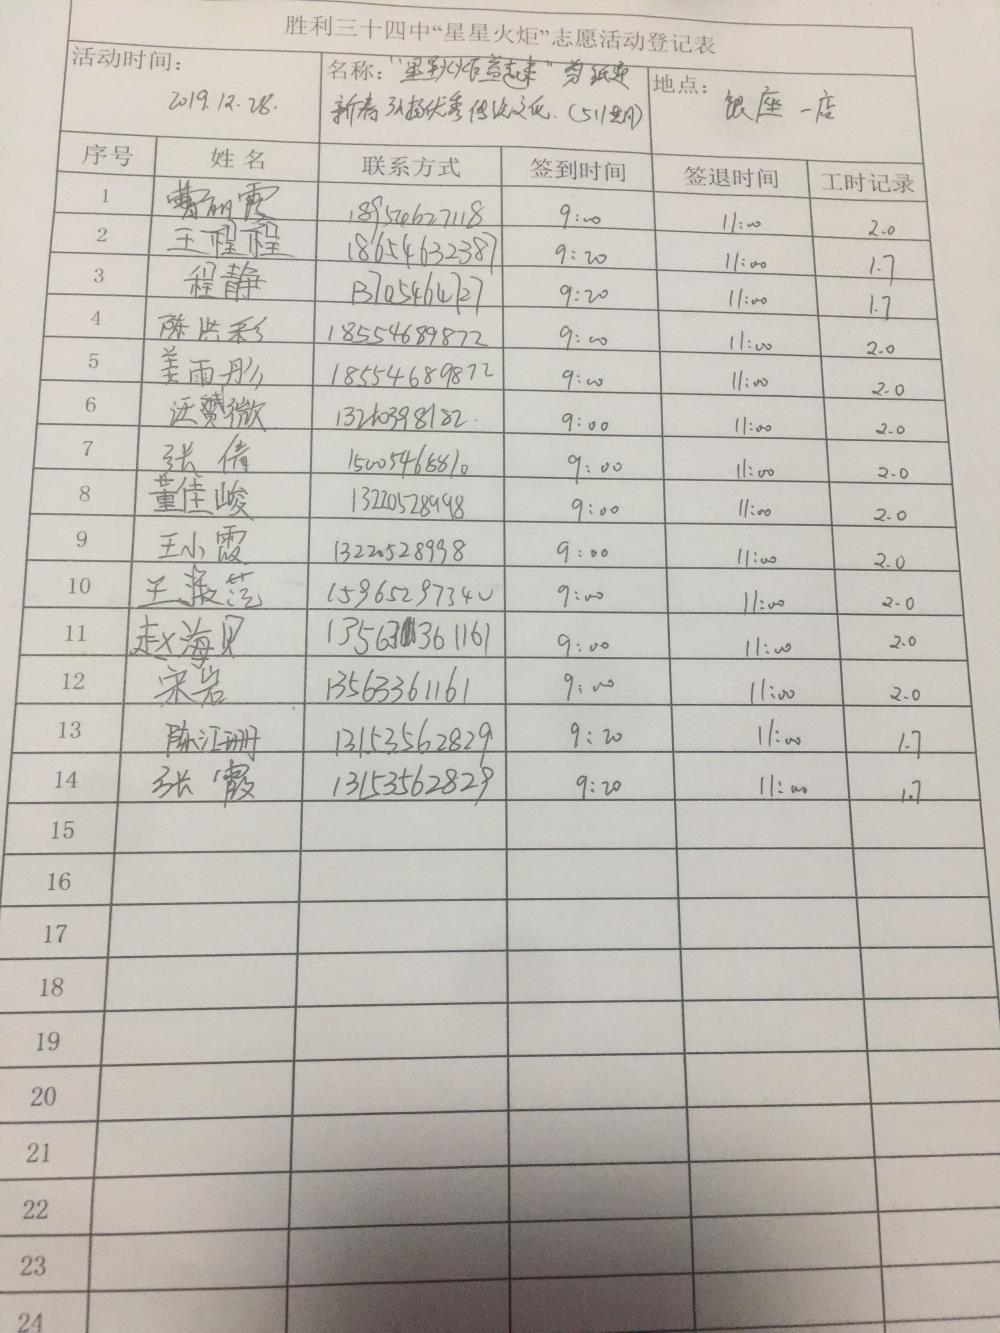 胜利三十四中“星星火炬”志愿活动登记表
活动时间： 2019.12.28.
名称：“星星火炬益起来”剪纸迎
新春 弘扬优秀传统文化.（511期）
地点： 银座一店
序号 姓名 联系方式 签到时间 签退时间 工时记录
1 曹丽霞 18954627118 9:00 11:00 2.0
2 王程程 18654632387 9:20 11:00 1.7
3 程静 13705464727 9:20 11:00 1.7
4 陈洪彩 18554689872 9:00 11:00 2.0
5 姜雨彤 18554689872 9:00 11:00 2.0
6 13210398182. 9:00 11:00 2.0
7 张倩 9:00 11:00 2.0
8 董佳峻 13220528998 9:00 11:00 2.0
9 王小霞 13220528998 9:00 11:00 2.0
10 15965297340 9:00 11:00 2.0
11 赵海贝 13563361161 9:00 11:00 2.0
12 宋岩 13563361161 9:00 11:00 2.0
13 陈江珊 13153562829 9:20 11:00 1.7
14 张霞 13153562829 9:20 11:00 1.7
15
16
17
18
19
20
21
22
23
24